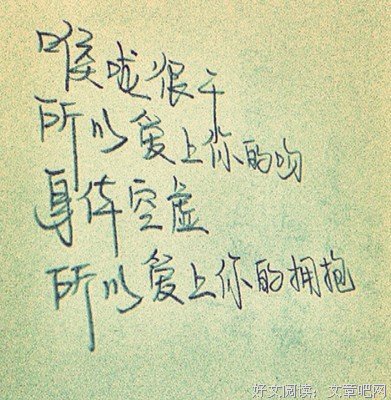 喉咙很干
所以爱上你的吻
身体空虚
所以爱上你的拥抱
好文阅读：文章吧网